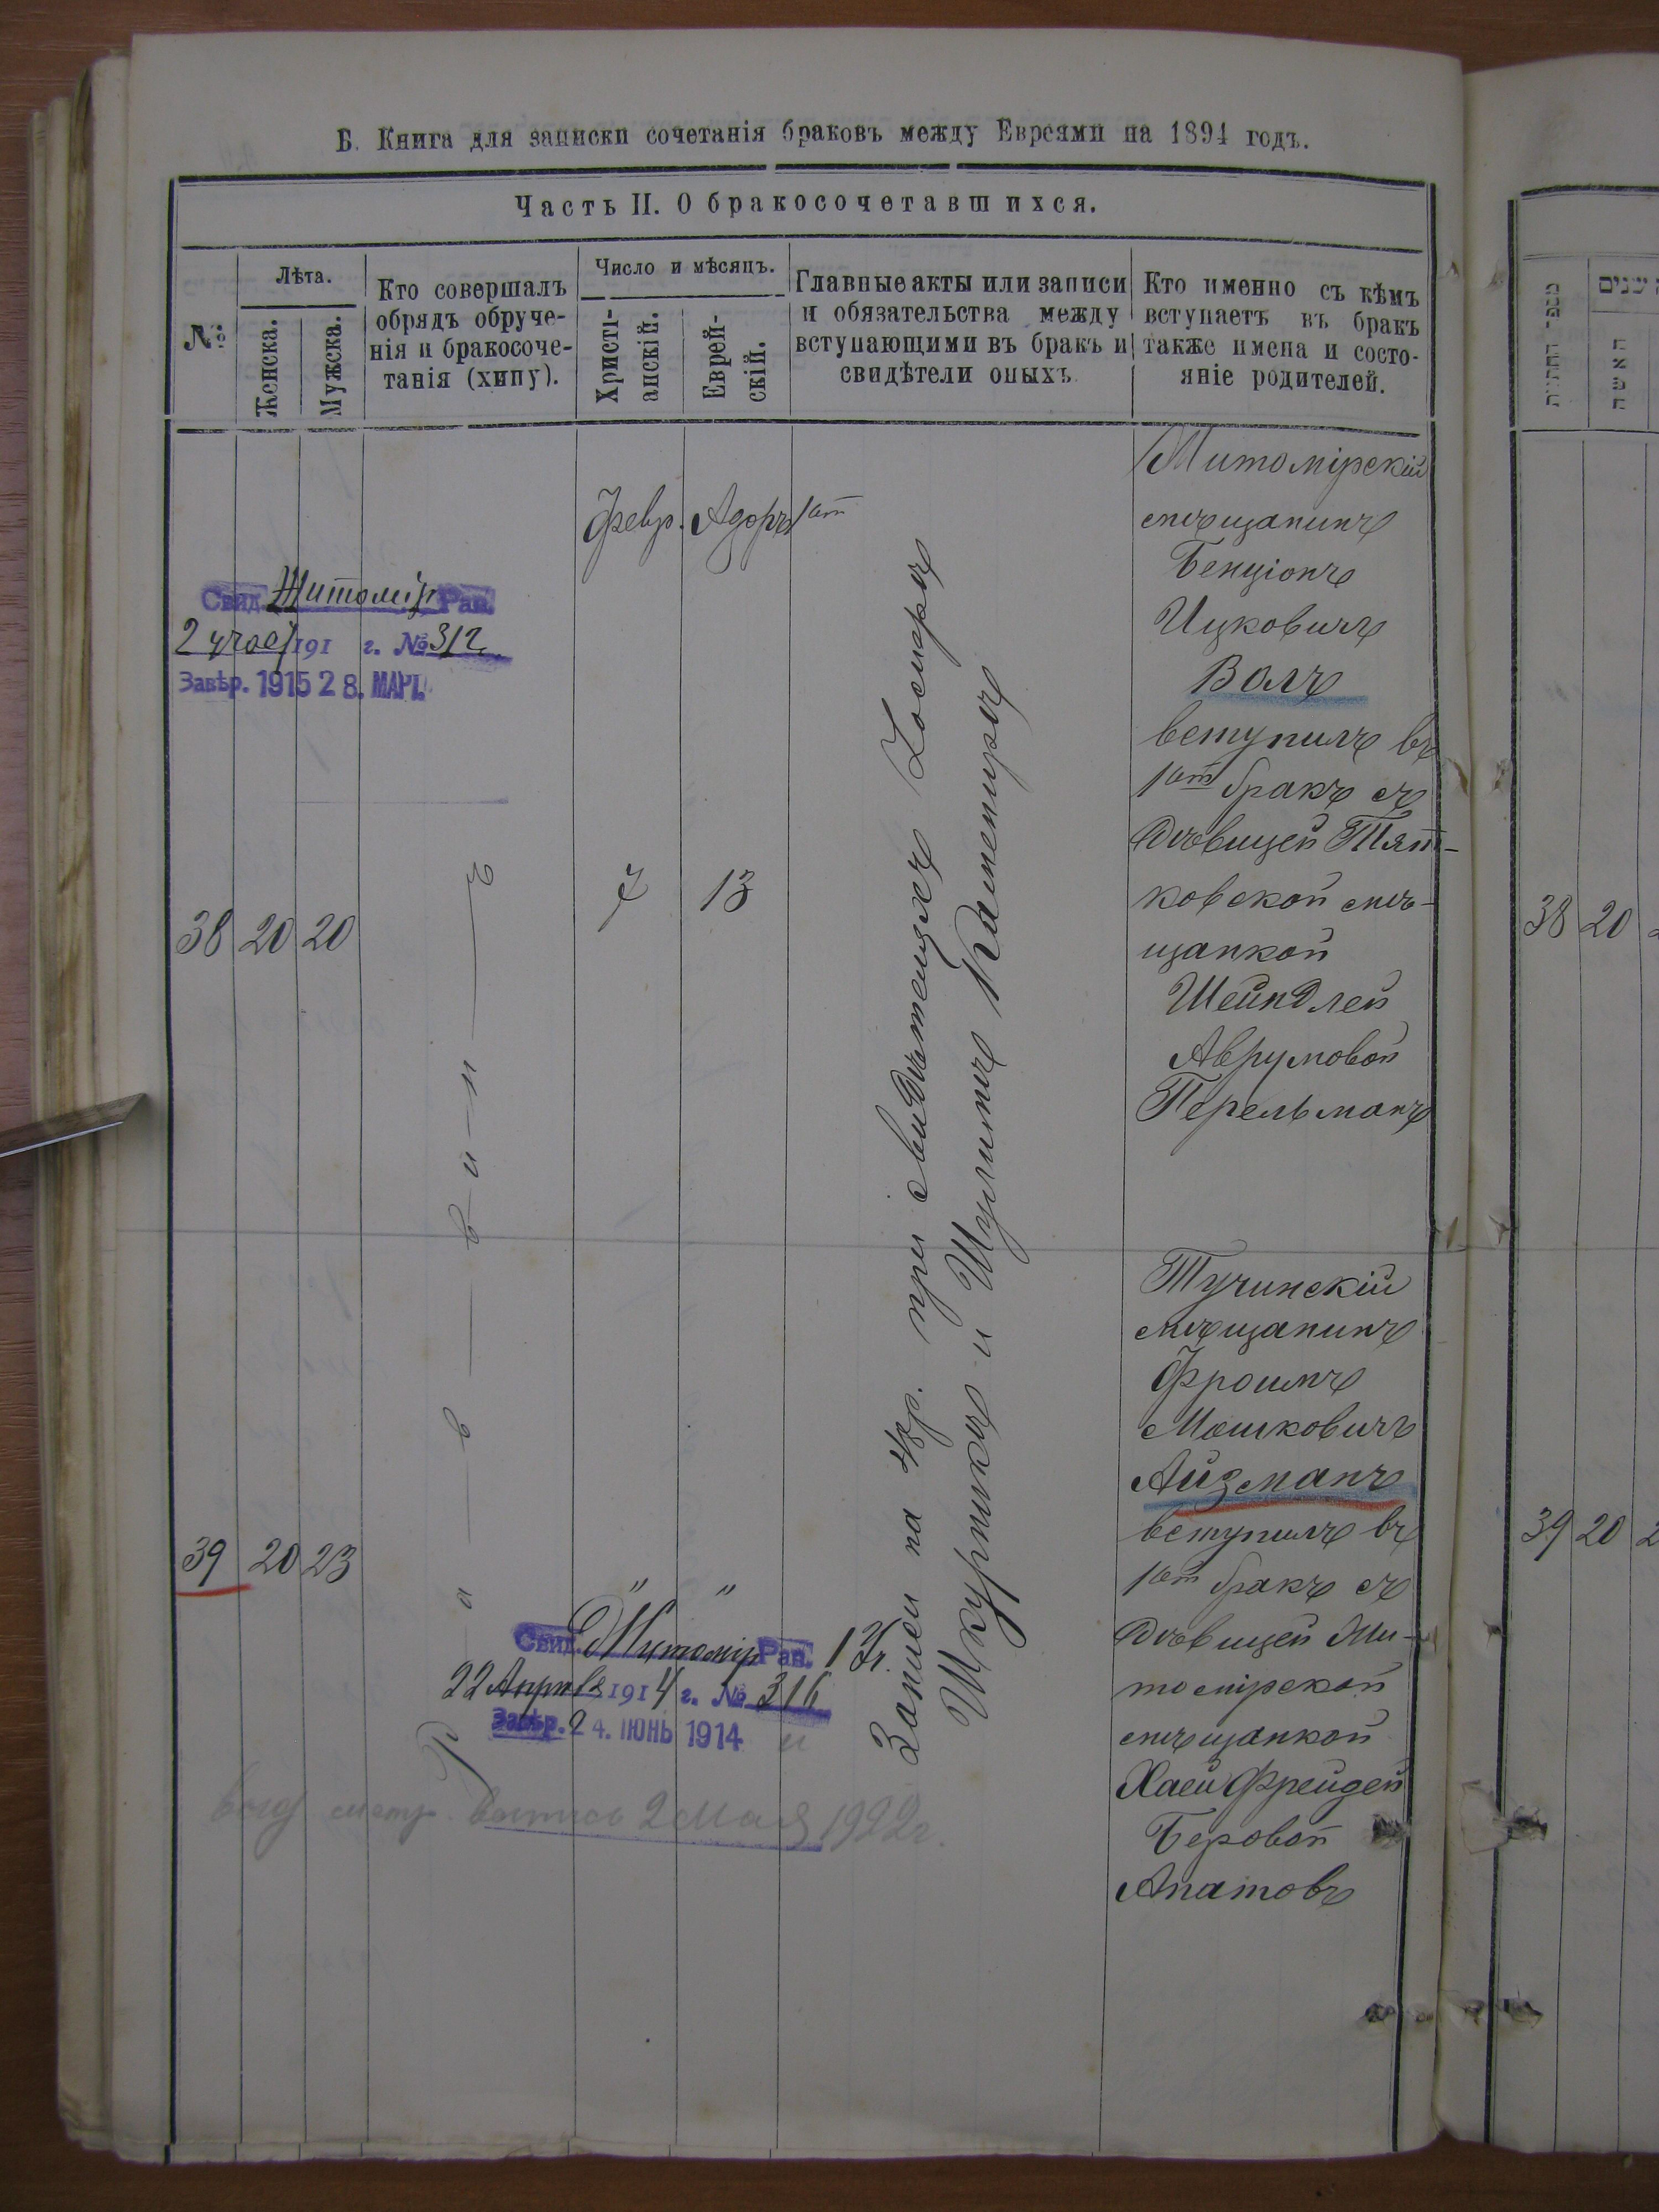 Б. Книга для записки сочетанія браковъ между Евреями на 1894 годъ.
Часть II. О бракосочетавшихся.
№
Лѣта.
Женска.
Мужска.
Кто совершалъ
обрядъ обруче-
нія и бракосоче-
танія (хипу).
Число и мѣсяцъ.
Христі-
анскій.
Еврей-
скій.
Главные акты или записи
и обязательства между
вступающими въ бракъ и
свидѣтели оныхъ
Кто именно съ кѣмъ
вступаетъ въ бракъ
также имена и состо-
яніе родителей.
Февр. Адоръ 1ый
Свид. Житомір Рав.
191 г. № 312
Завѣр. 1915 28. МАРТ.
38 20 20
Раввинъ
7 13
Записи на 48р. при свидѣтеляхъ
Шкурникъ и Шулимъ Камениръ
Житомірскій
мѣщанинъ
Бенціонъ
Ицковичъ
Волъ
вступилъ въ
1ый бракъ съ
дѣвицей Пят-
ковской мѣ-
щанкой
Шейндлей
Аврумовой
Перельманъ
39 20 23
" "
Свид. Житомір Рав.
22 Апрѣля 1914 г. № 316
Завѣр. 24. ІЮНЬ 1914
2 Мая 1922г.
Тучинскій
мѣщанинъ
Фроимъ
Мошковичъ
Айзманъ
вступилъ въ
1ый бракъ съ
дѣвицей Жи-
томірской
мѣщанкой
Хаей Фрейдей
Беровой
Апатовъ
38 20
39 20 2
מספר החתונות
שנים
האשה